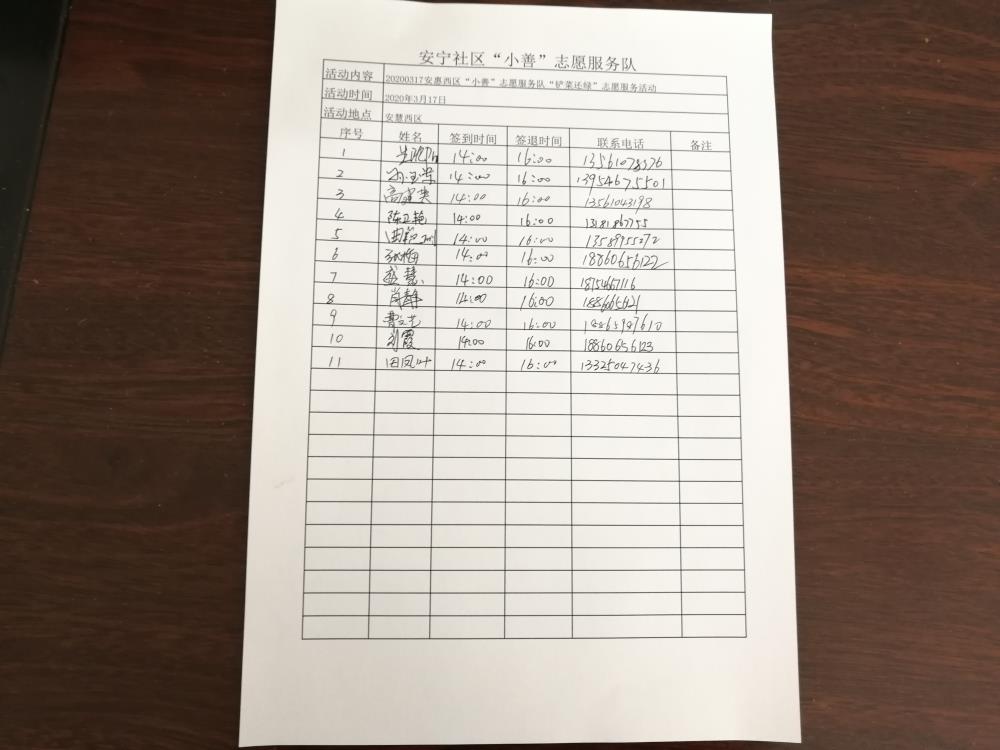 安宁社区“小善”志愿服务队
活动内容 20200317安惠西区“小善”志愿服务队“铲菜还绿”志愿服务活动
活动时间 2020年3月17日
活动地点 安慧西区
序号 姓名 签到时间 签退时间 联系电话 备注
1 14:00 16:00 13561078576
2 14:00 16:00 13954675501
3 高建英 14:00 16:00 13561043198
4 陈卫艳 14:00 16:00 13181867755
5 14:00 16:00 13589955272
6 张梅 14:00 16:00 18860656122
7 盛慧 14:00 16:00 18754667116
8 肖静 14:00 16:00
9 曹文芝 14:00 16:00 18865987610
10 刘霞 14:00 16:00 18860656123
11 田凤叶 14:00 16:00 13325047436